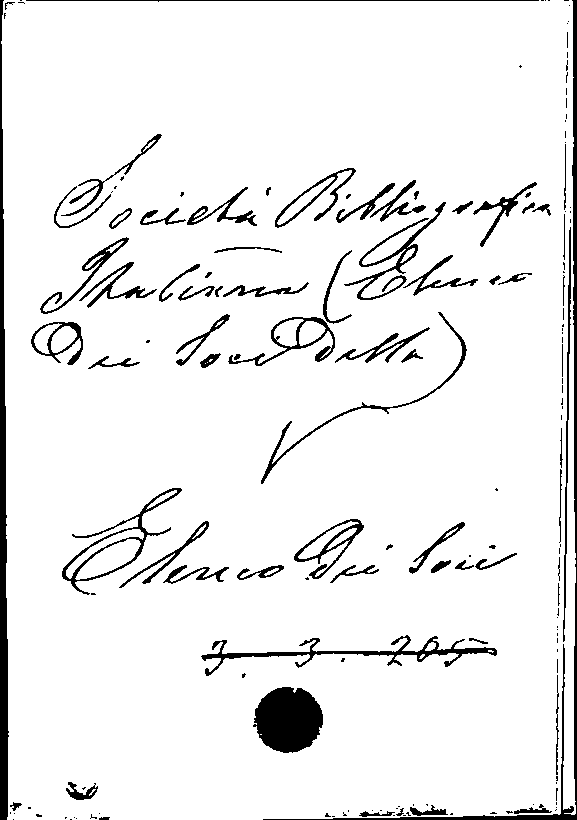 Società Bibliografica
Italiana (Elenco
Dei Soci Della)
Elenco Dei Soci
3. 3. 205